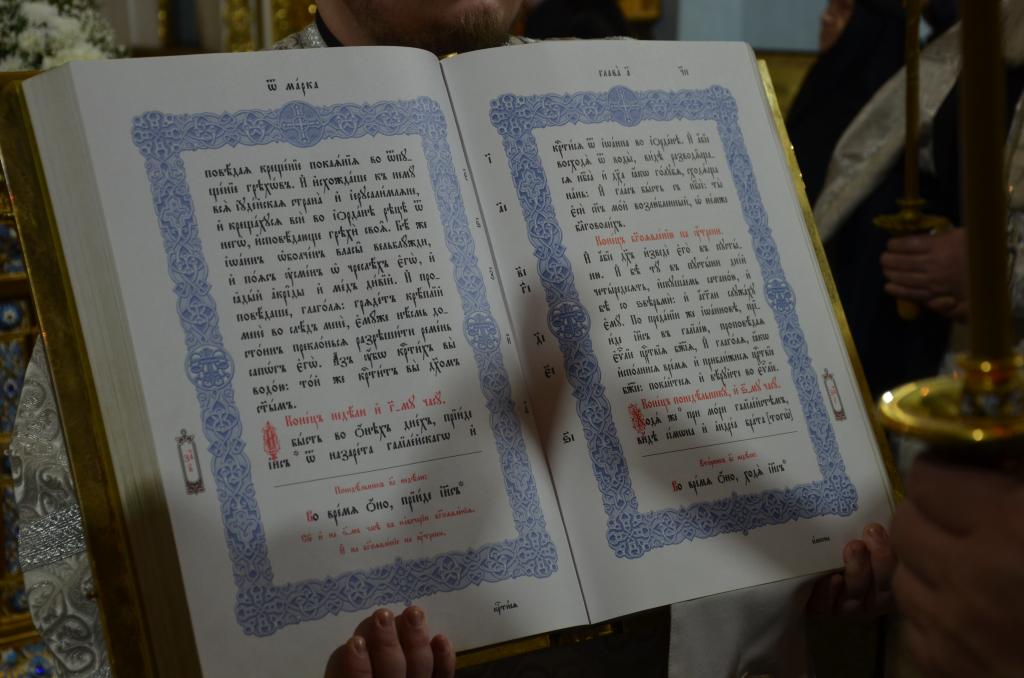 Ѿ ма́рка
повѣ́дая креще́нїе покая́нїя во ѿпꙋ-
ще́нїе грѣхѡ́въ. И҆ и҆схожда́ше къ немꙋ̀
всѧ̀ і҆ꙋде́йскаѧ страна̀ и҆ і҆ерⷭ҇али́млѧне,
и҆ креща́хꙋсѧ всѝ во і҆ѻрда́нѣ рѣцѣ̀ ѿ
негѡ̀, и҆сповѣ́дающе грѣхѝ своѧ̑. Бѣ́ же
і҆ѡа́ннъ ѡ҆болче́нъ власы̑ вельблꙋ́жди,
и҆ по́ѧсъ ᲂу҆сме́нъ ѡ҆ чре́слѣхъ є҆гѡ̀, и҆
ꙗ҆ды́й а҆кри́ды и҆ ме́дъ ди́вїй. И҆ про-
повѣ́даше, глаго́лѧ: грѧде́тъ крѣ́плїй
менє̀ во слѣ́дъ менє̀, є҆мꙋ́же нѣ́смь до-
сто́инъ прекло́ньсѧ разрѣши́ти реме́нь
сапѡ́гъ є҆гѡ̀. А҆́зъ ᲂу҆́бѡ крⷭ҇ти́хъ вы̀
водо́ю: то́й же крⷭ҇ти́тъ вы̀ дх҃омъ
ст҃ы́мъ.
Коне́цъ недѣ́ли и҆ г҃-мꙋ часꙋ̀.
Бы́сть во ѻ҆́нѣхъ дне́хъ, прїи́де
і҆и҃съ ѿ назаре́та галїле́йскагѡ и҆
Во вре́мѧ ѻ҆́но, прїи́де і҆и҃съ
И҆ на бг҃оѧвле́нїе на ᲂу҆́трени.
крⷭ҇ти́сѧ
глава̀ а҃
крⷭ҇ти́сѧ ѿ і҆ѡа́нна во і҆ѻрда́нѣ. И҆ а҆́бїе
восходѧ̀ ѿ воды̀, ви́дѣ разводѧ́ща-
сѧ нб҃са̀ и҆ дх҃а ꙗ҆́кѡ го́лꙋбѧ, сходѧ́ща
на́нь: И҆ гла́съ бы́сть съ нб҃сѐ: ты̀
є҆сѝ сн҃ъ мо́й возлю́бленный, ѡ҆ не́мже
бл҃говоли́хъ.
Коне́цъ бг҃оѧвле́нїѧ на ᲂу҆́трени.
И҆ а҆́бїе дх҃ъ и҆зведѐ є҆го̀ въ пꙋсты́-
ню. И҆ бѣ̀ тꙋ̀ въ пꙋсты́ни дні́й
четы́редесѧть, и҆скꙋша́емь сатано́ю, и҆
бѣ̀ со ѕвѣрьмѝ: и҆ а҆́гг҃ли слꙋжа́хꙋ
є҆мꙋ̀. По преда́нїи же і҆ѡа́нновѣ, прї-
и́де і҆и҃съ въ галїле́ю, проповѣ́даѧ
є҆ѵⷢ҇лїе црⷭ҇твїѧ бж҃їѧ, И҆ глаго́лѧ, ꙗ҆́кѡ
и҆спо́лнисѧ вре́мѧ и҆ прибли́жисѧ црⷭ҇твїе
бж҃їе: пока́йтесѧ и҆ вѣ́рꙋйте во є҆ѵⷢ҇лїе.
Коне́цъ понедѣ́льникꙋ, и҆ ѕ҃-мꙋ часꙋ̀.
Ходѧ́ же при мо́ри галїле́йстѣмъ,
ви́дѣ сі́мѡна и҆ а҆ндре́а бра́та (тогѡ̀)
Во вре́мѧ ѻ҆́но, ходѧ̀ і҆и҃съ